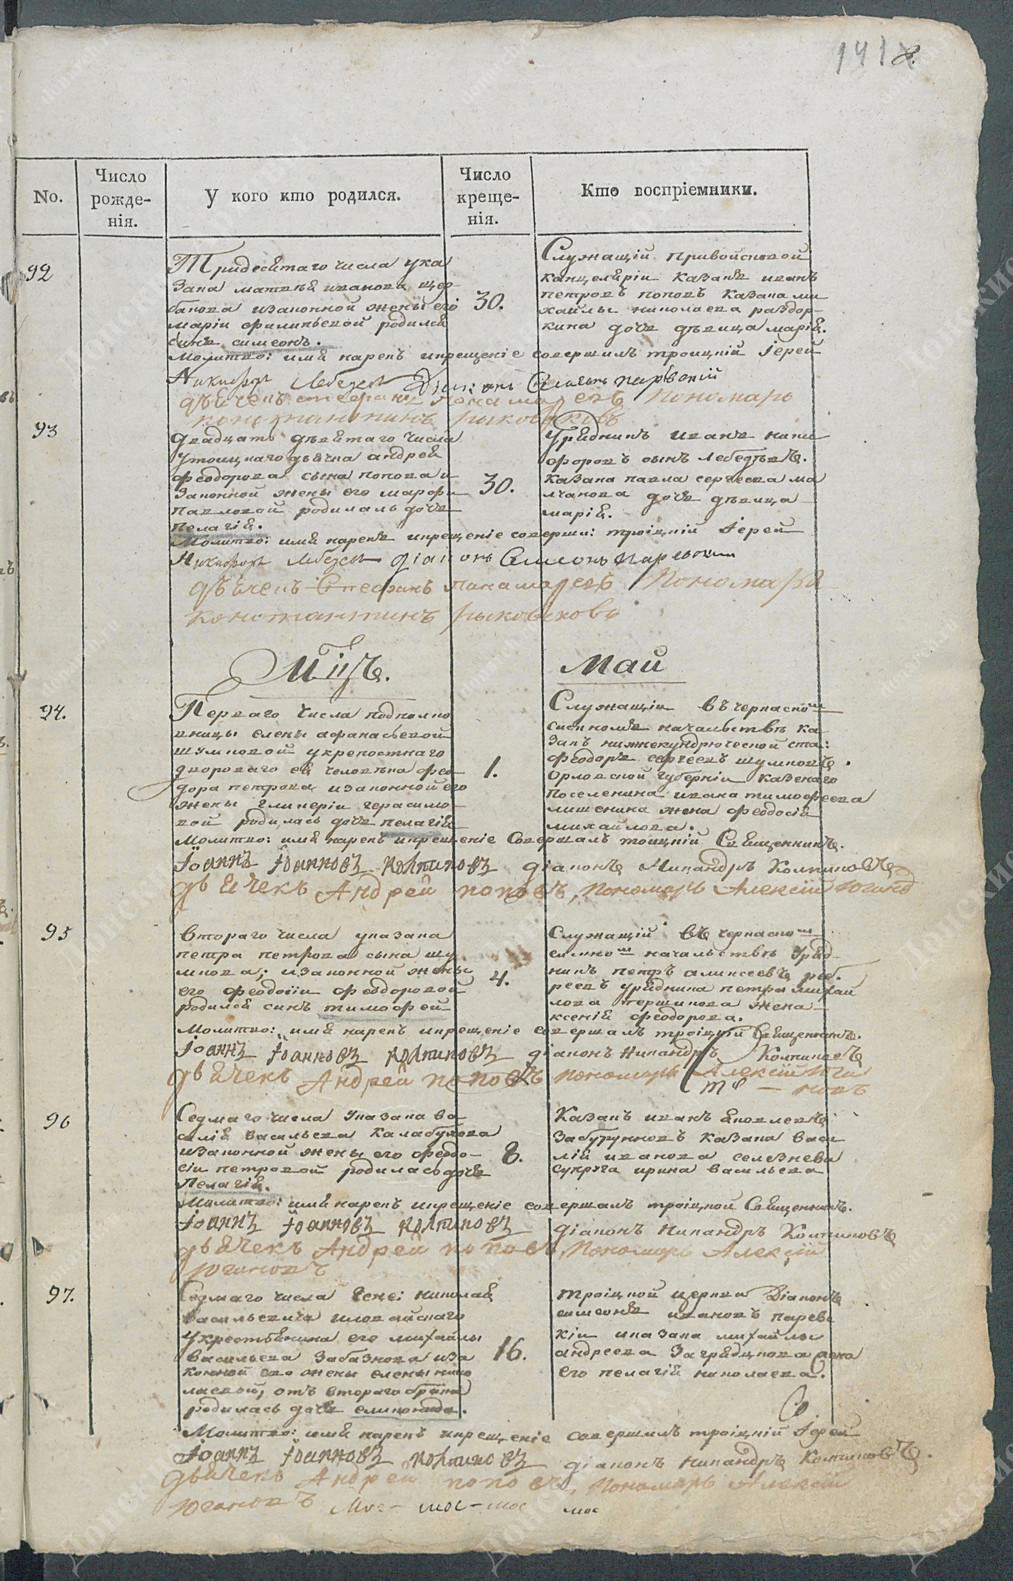 141
8.
No.
Число рожденія.
У кого кто родился.
Число крещенія.
Кто воспріемники.
92
Тридесятаго числа у ка
зака матвѣя иванова щер
бакова изаконной жены его
маріи филипьевой родился
сынъ симеонъ.
30.
Служащій привойсковой
канцеляріи казакъ иванъ
петровъ поповъ казака ми
хайлы николаева раздор
кина дочь дѣвица марія.
Молитво: имя нареч икрещеніе совершилъ троицкій Іерей
Никифоръ Лебедевъ Діаконъ Симеонъ паревскій
дьячекъ стефанъ понамаревъ Пономарь
константинъ рыковсковъ
93
двадцать девятаго числа
утроицкаго дьячка андрея
феодорова сына попова и
законной жены его марфы
павловой родилась дочь
пелагія.
30.
Урядникъ иванъ ники
форовъ сынъ лебедевъ.
казака павла сергеева мо
лчанова дочь дѣвица
марія.
Молитво: имя нарекъ икрещеніе соверши: троицкій Іерей
Никифоръ Лебедевъ діаконъ Симеонъ паревскій
дьячекъ Стефанъ панамаревъ Пономарь
константинъ рыковсковъ
Мцъ. Май
94.
Перваго числа подполко
вницы елены афанасьевой
шумковой укрепостнаго
двороваго ея человѣка фео
дора петрова изаконной его
жены гликеріи герасимо
вой родилась дочь пелагія
1.
Служащій въ черкаскомъ
сыскномъ начальствѣ ка
закъ нижнекундрюческой ста:
феодоръ сергеевъ шумковъ.
Орловской губерніи казенаго
поселенина ивана тимофеева
жена феодосія
михайлова.
Молитво: имя нарекъ икрещеніе совершалъ троицкій Священникъ.
Іоаннъ Іоанновъ колпиковъ діаконъ Никандръ Колпиковъ
дьячекъ Андрей поповъ, пономарь Алексій
95
втораго числа указака
петра петрова сына шу
мкова; изаконной жены
его феодосіи феодоровой
родился сынъ тимофей
4.
Служащій въ черкаскомъ
сыскномъ начальствѣ Уряд
никъ петръ алексеевъ
урядника петра михай
лова жена
ксенія феодорова.
Молитво: имя нарекъ икрещеніе совершалъ троицкій Священникъ.
Іоаннъ Іоанновъ колпиковъ діаконъ Никандръ Колпиковъ
дьячекъ Андрей поповъ пономарь Алексій
96
Седмаго числа Указака ва
силія васильева Калабухова
изаконной жены его феодо
сіи петровой родилась дочь
Пелагія.
8.
Казакъ иванъ яковлевъ
казака васи
лія иванова селезнева
супруга ирина васильева
Молитво: имя нарекъ икрещеніе совершалъ троицкой Священникъ.
Іоаннъ Іоанновъ колпиковъ діаконъ Никандръ Колпиковъ
дьячекъ Андрей поповъ, Пономарь Алексій
97.
Седмаго числа Гене: николая
васильевича иловайскаго
у крестьянина его михайлы
васильева Забазнова иза
конной его жены елены нико
лаевой, отъ втораго брака
родилась дочь
16.
троицкой церкви Діаконъ
симеонъ ивановъ парев
кій иказака михайлы
андреева жена
его пелагія николаева.
Молитво: имя нарекъ икрещеніе совершилъ троицкій Іерей
Іоаннъ Іоанновъ колпиковъ діаконъ Никандръ Колпиковъ.
дьячекъ Андрей поповъ, Пономарь Алексій